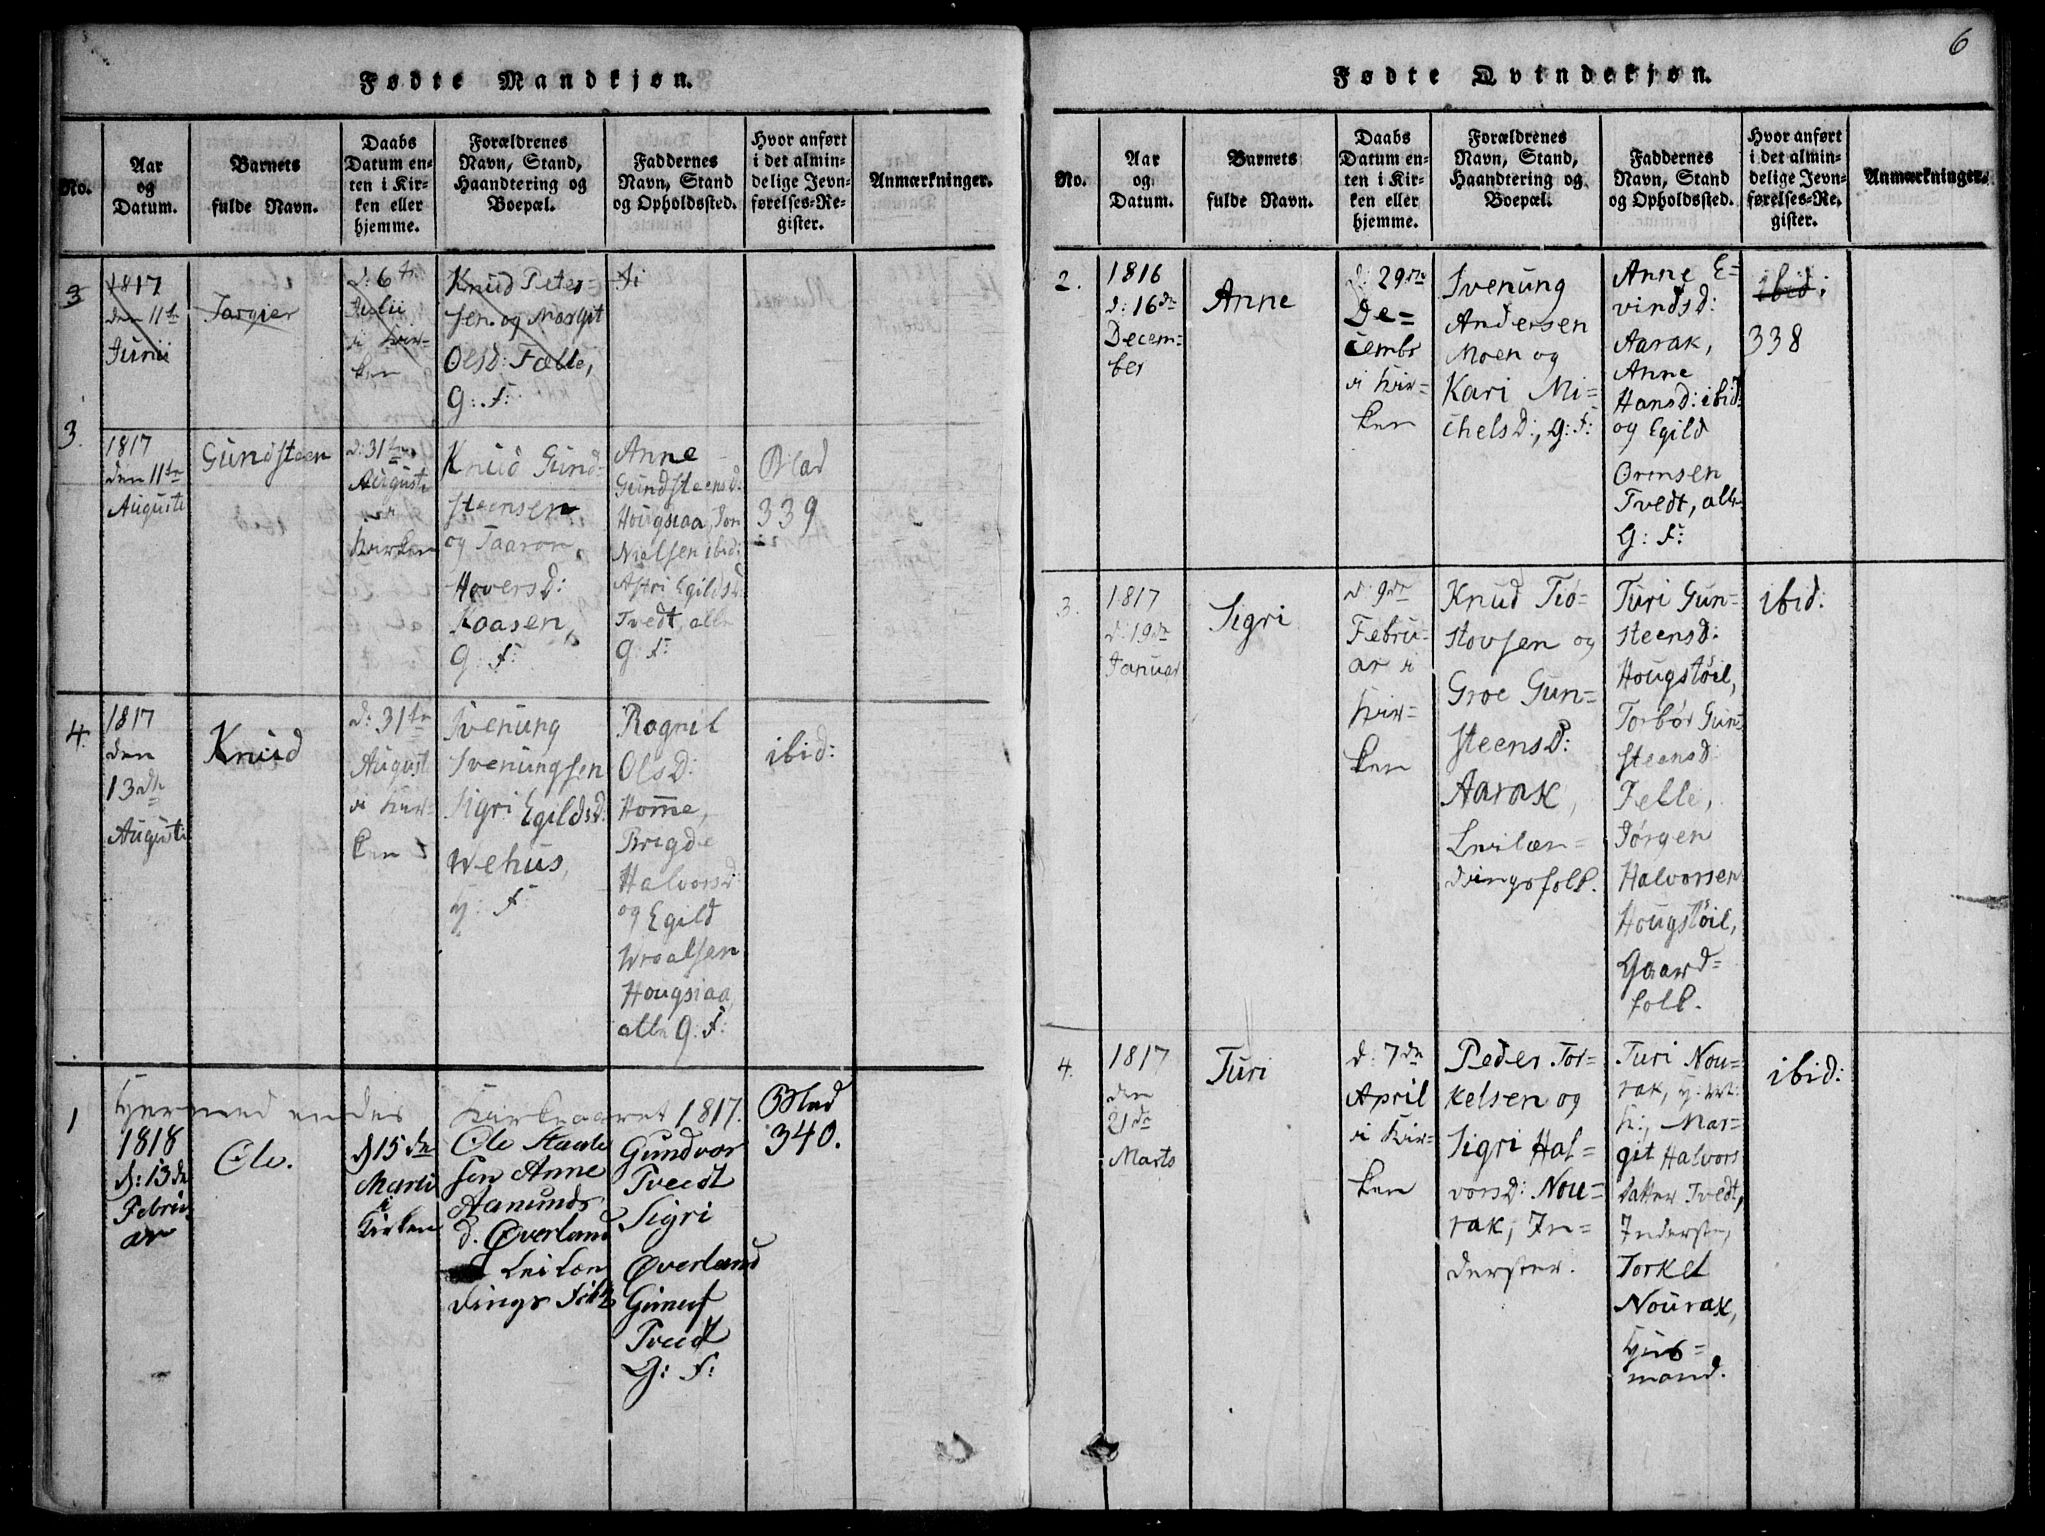 6
Fødte Mandkjøn.
No.
Aar
og
Datum.
Barnets
fulde Navn.
Daabs
Datum en-
ten i Kir-
ken eller
hjemme.
Forældrenes
Navn, Stand,
Haandtering og
Boepæl.
Faddernes
Navn, Stand
og Opholdssted.
Hvor anført
i det almin-
delige Jevn-
førelses-Re-
gister.
Anmærkninger.
3
1817
den 11te
Junii
Targier
d: 6te
Julii
i Kir-
ken
Knud Peter
sen og Margit
Olsd: Fælle,
G: F:
3.
1817
den 11te
Augusti
Gundsteen
d: 31te
Augusti
i
Kirken
Knud Gund-
steensen
og Taaron
Hoversd:
Kaasen,
G: F:
Anne
Gundsteensd:
Hougsiaa, Jon
Nielsen ibid:
Astri Egildsd:
Tvedt, alle
G: F:
Blad
339
4.
1817
den
13de
Augusti
Knud
d: 31te
August
i Kir-
ken
Svenung
Svenungsen
Sigri Egildsd:
Wehus,
G: F:
Rognil
Olsd:
Homme,
Brigde
Halvorsd:
og Egild
Wroalsen
Hougsiaa,
alle G: F:
Hermed endes Kirkeaaret 1817.
1
1818
d: 13de
Febru-
ar
Ole.
d 15de
Martii
i
Kirken
Ole Staale
sen Anne
Aamunds
d. Øverland
Leilæn
dings Folk
Gundvor
Tveedt
Sigri
Øverland
Gunuf
Tveedt
G: F:
Blad
340.
Fødte Qvindekjøn.
No.
Aar
og
Datum.
Barnets
fulde Navn.
Daabs
Datum en-
ten i Kir-
ken eller
hjemme.
Forældrenes
Navn, Stand,
Haandtering og
Boepæl.
Faddernes
Navn, Stand
og Opholdssted.
Hvor anført
i det almin-
delige Jevn-
førelses-Re-
gister.
Anmærkninger.
2.
1816
d: 16de
Decem-
ber
Anne
d: 29de
De-
cembr
i Kir-
ken
Svenung
Andersen
Moen og
Kari Mi-
chelsd:, G: F:
Anne E-
vindsd:
Aarak,
Anne
Hansd: ibid:
og Egild
Ørensen
Tvedt, alle
G: F:
ibid:
338
3.
1817
d: 19de
Januar
Sigri
d: 9de
Febru-
ar i
Kir-
ken
Knud Tiø-
stovsen og
Groe Gun-
steensd:
Aarak,
Leilæn-
dingsfolk.
Turi Gun-
steensd:
Hougstøil,
Torbør Gun-
steensd:
Felle,
Jørgen
Halvorsen
Hougstøil,
Gaard-
folk.
ibid:
4.
1817
den
21de
Marts
Turi
d: 7de
April
i Kir-
ken
Peder Tor-
kelsen og
Sigri Hal-
vorsd: Nou-
rak, In-
derster.
Turi Nou-
rak,
Mar-
git Halvors
datter Tvedt,
Inderste,
Torkel
Nourak,
Huus-
mand.
ibid: